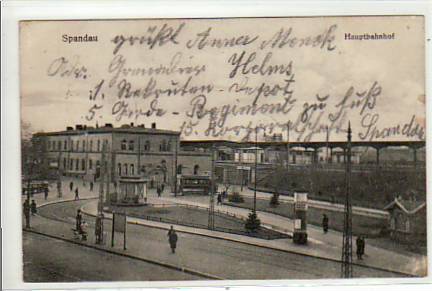 Spandau
Hauptbahnhof
grüßt Anna
Adr. Grenadier Helms
1. Rekruten-Depot
5. Garde-Regiment zu Fuß
15. Korporalschaft Spandau